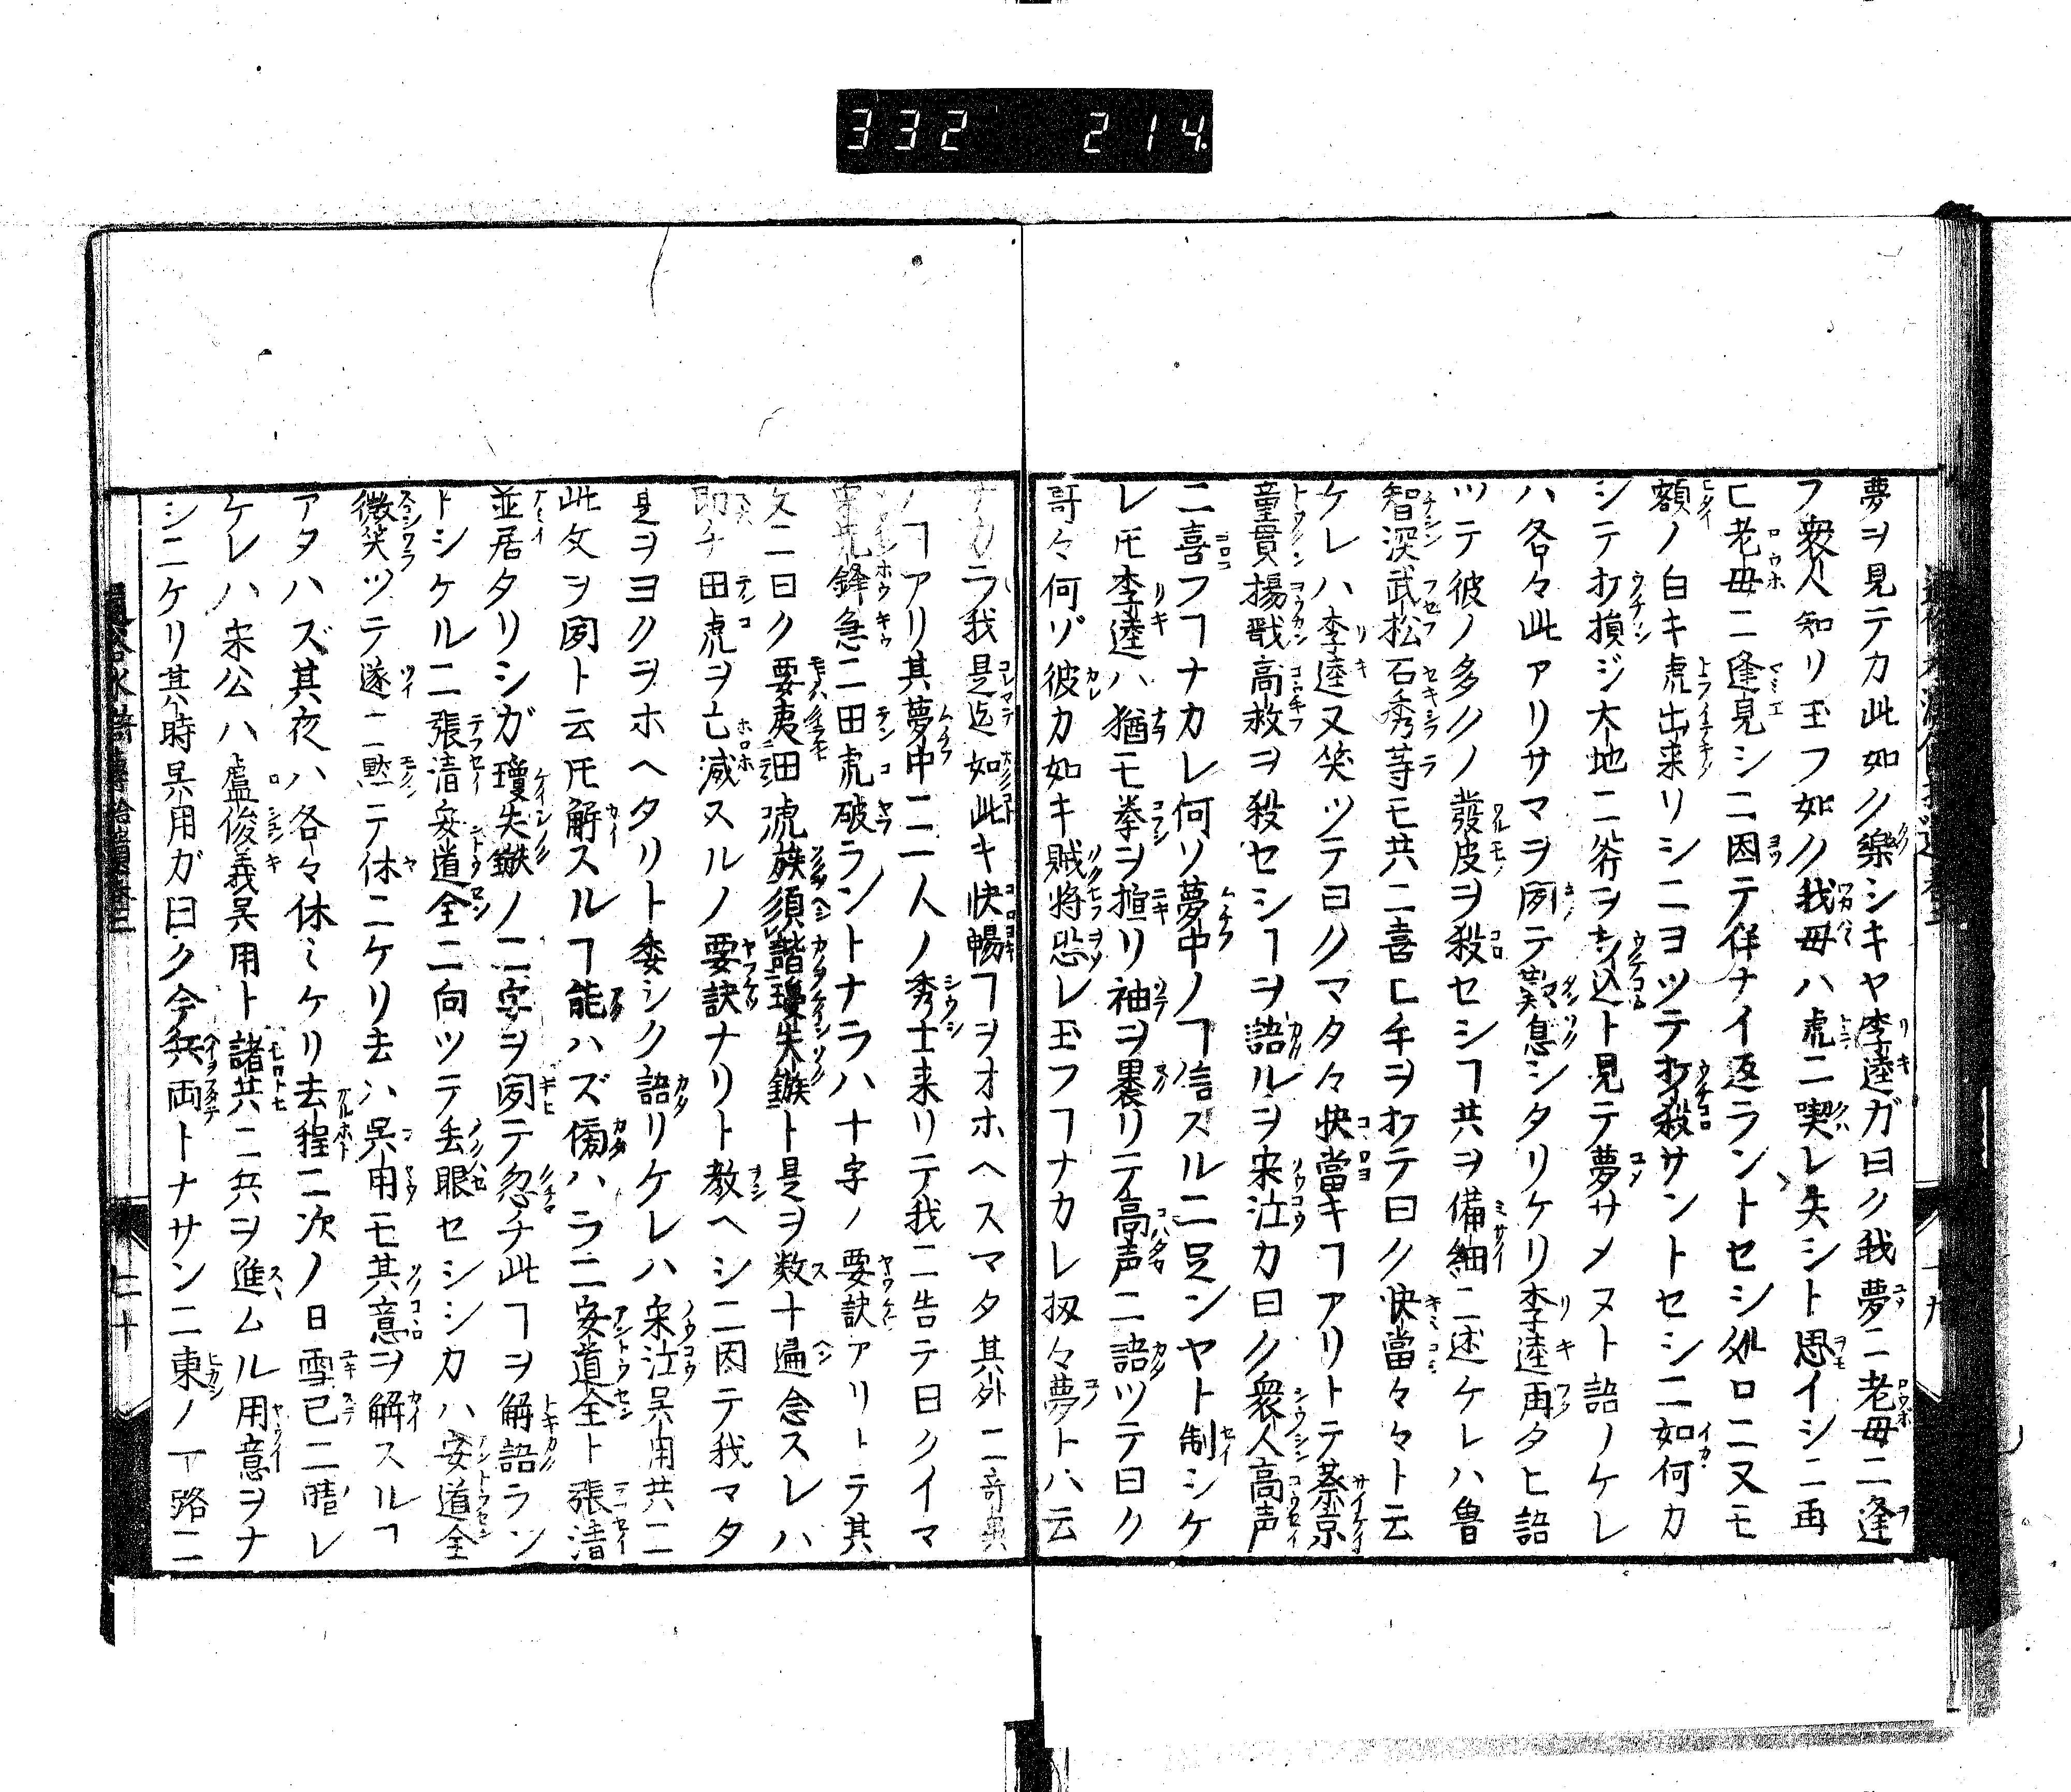 332 214
夢ヲ見テカ此如ク樂シキヤ李逵ガ曰ク我夢ニ老母ニ逢
フ衆人知リ玉フ如ク我母ハ虎ニ喫レ失シト思イシニ再
ヒ老母ニ逢見シニ因テ伴ナイ返ラントセシ処ロニ又モ
額ノ白キ虎出来リシニヨツテ打殺サントセシニ如何カ
シテ打損ジ大地ニ込ト見テ夢サメヌト語ノケレ
ハ各々此アリサマヲ聞テ歎息シタリケリ李逵再タヒ語
ツテ彼ノ多クノ發皮ヲ殺セシヿ共ヲ備細ニ述ケレハ魯
智深武松石秀等モ共ニ喜ヒ手ヲ打テ曰ク快當々々ト云
ケレハ李逵又笑ツテ曰クマタ々快當キヿアリトテ蔡京
童貫揚戩高救ヲ殺セシヿヲ語ルヲ宋江カ曰ク衆人高声
ニ喜フヿナカレ何ソ夢中ノヿ信スルニ足ンヤト制シケ
レ𪜈李逵ハ猶モ拳ヲ揎リ袖ヲ裹リテ高声ニ語ツテ曰ク
哥々何ソ彼カ如キ賊將恐レ玉フヿナカレ扨々夢トハ云
ナカラ我是迄如此キ快暢ヿヲオホヘスマタ其外ニ奇異
ノヿアリ其夢中ニ一人ノ秀士来リテ我ニ告テ曰クイマ
鋒急ニ田虎破ラントナラハ十字ノ要訣アリトテ其
文ニ曰ク要夷田虎族須諧瓊矢鏃ト是ヲ数十遍念スレハ
即チ田虎ヲ亡滅スルノ要訣ナリト教ヘシニ因テ我マタ
是ヲヨクヲホヘタリト委シク語リケレハ宋江呉用共ニ
此文ヲ聞ト云𪜈解スルヿ能ハズ傍ハラニ安道全ト張清
並居タリシガ瓊矢鏃ノ二字ヲ聞テ忽チ此ヿヲ解語ラン
トシケルニ張清安道全ニ向ツテ丢眼セシシカハ安道全
微笑ツテ遂ニ黙テ休ニケリ去ハ呉用モ其意ヲ解スルヿ
アタハズ其夜ハ各々休ミケリ去程ニ次ノ日雪已ニ晴レ
ケレハ宋公ハ盧俊義呉用ト諸共ニ兵ヲ進ムル用意ヲナ
シニケリ其時呉用ガ曰ク今兵両トナサンニ東ノ一路ニ
二十